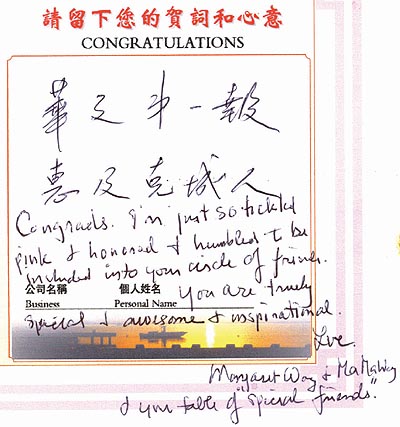 請留下您的賀詞和心意
CONGRATULATIONS
華文第一報
惠及克城人
Congrads. I'm just so tickled
pink & honored & humbled to be
included into your circle of friends.
公司名稱 個人姓名
Business Personal Name
you are truly
special & awesome & inspirational.
Love.
Margaret Wong &
& your table of "special friends."